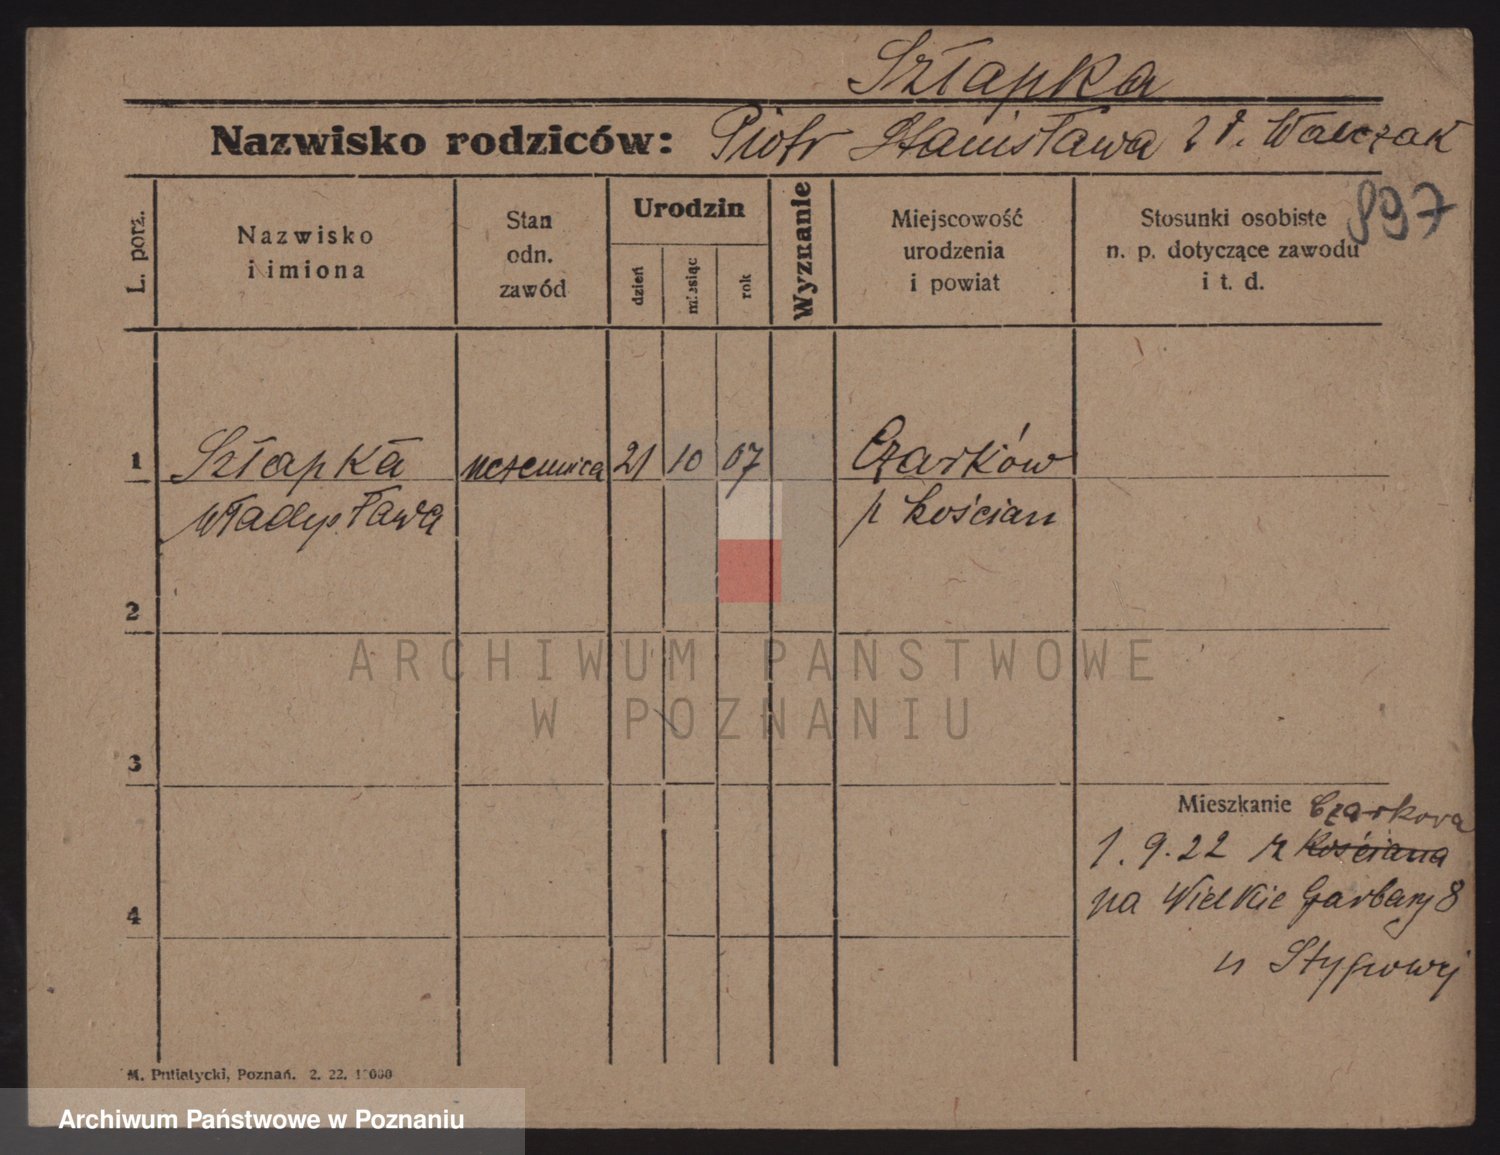 Szłapka
Nazwisko rodziców: Piotr Stanisława z d. Walczak
897
L. porz.
Nazwisko
i imiona
Stan
odn.
zawód
Urodzin
dzień
miesiąc
rok
Wyznanie
Miejscowość
urodzenia
i powiat
Stosunki osobiste
n. p. dotyczące zawodu
i t. d.
1 Szłapka uczennica 21 10 07 Czarków
Władysława p Kościan
2
ARCHIWUM PAŃSTWOWE
W POZNANIU
3
Mieszkanie Czarkowa
1.9.22 z Kościana
na Wielkie Garbary 8
u
4
M. Putiatycki, Poznań. 2. 22. 10000
Archiwum Państwowe w Poznaniu